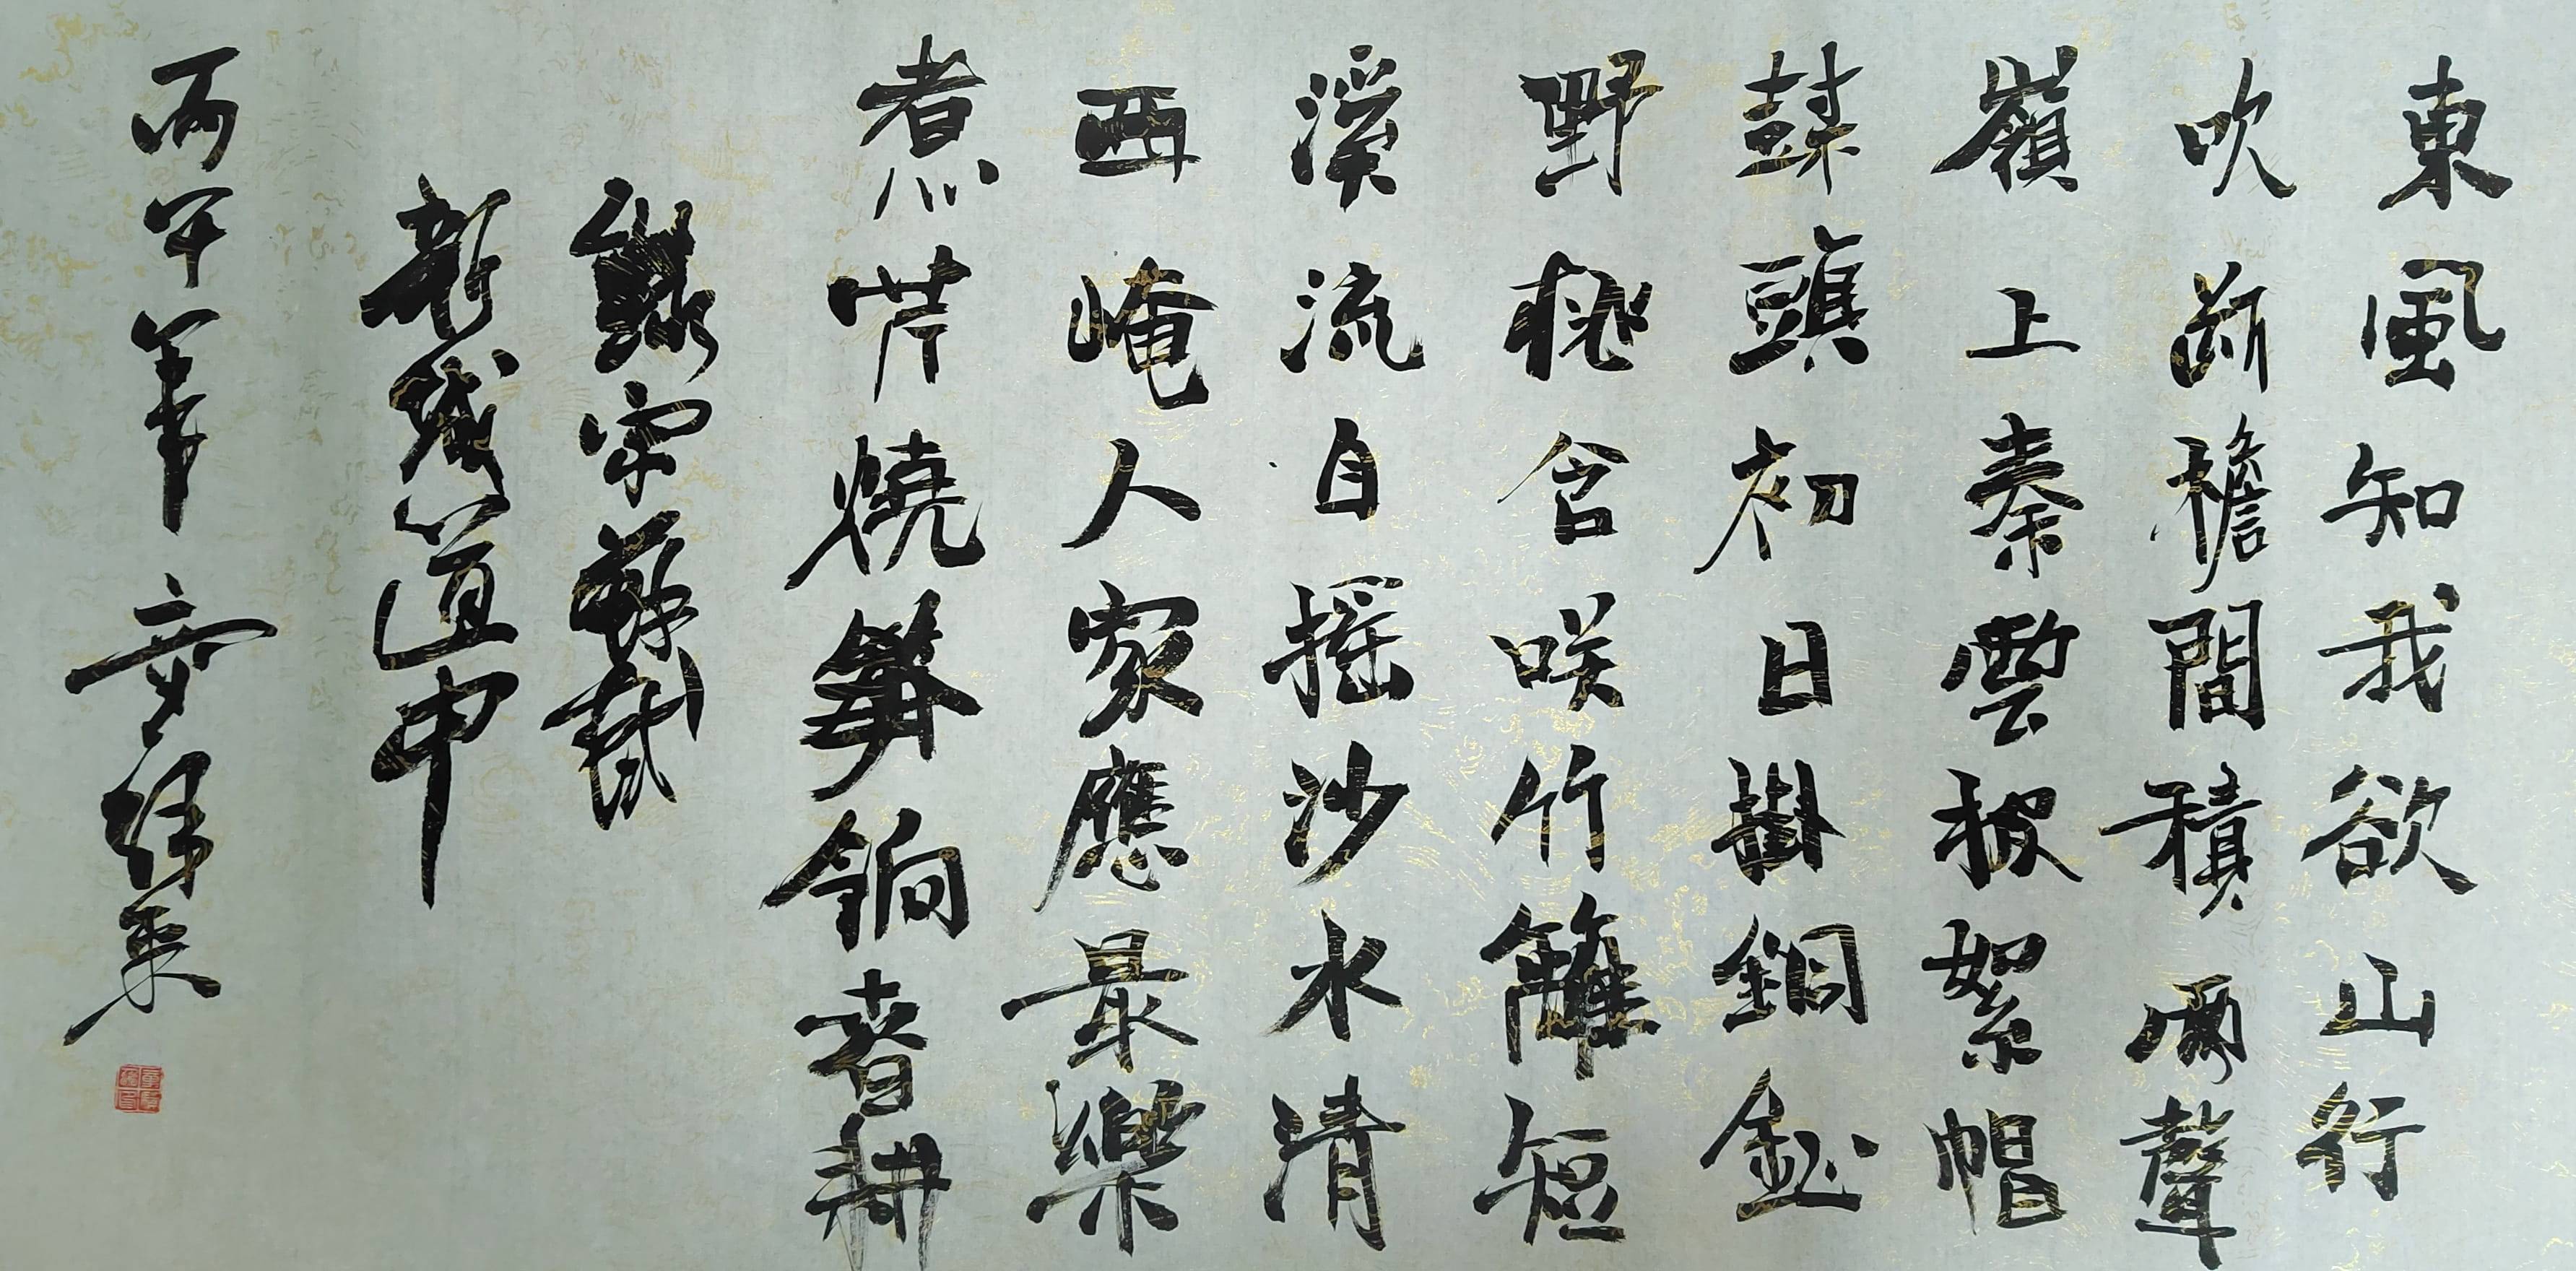 東風知我欲山行
吹斷檐間積雨聲
嶺上秦雲披絮帽
頭初日掛銅鉦
野桃含咲竹籬短
溪流自摇沙水清
西崦人家應最樂
煮芹燒筍餉春耕
錄宋蘇軾
新城道中
丙午年